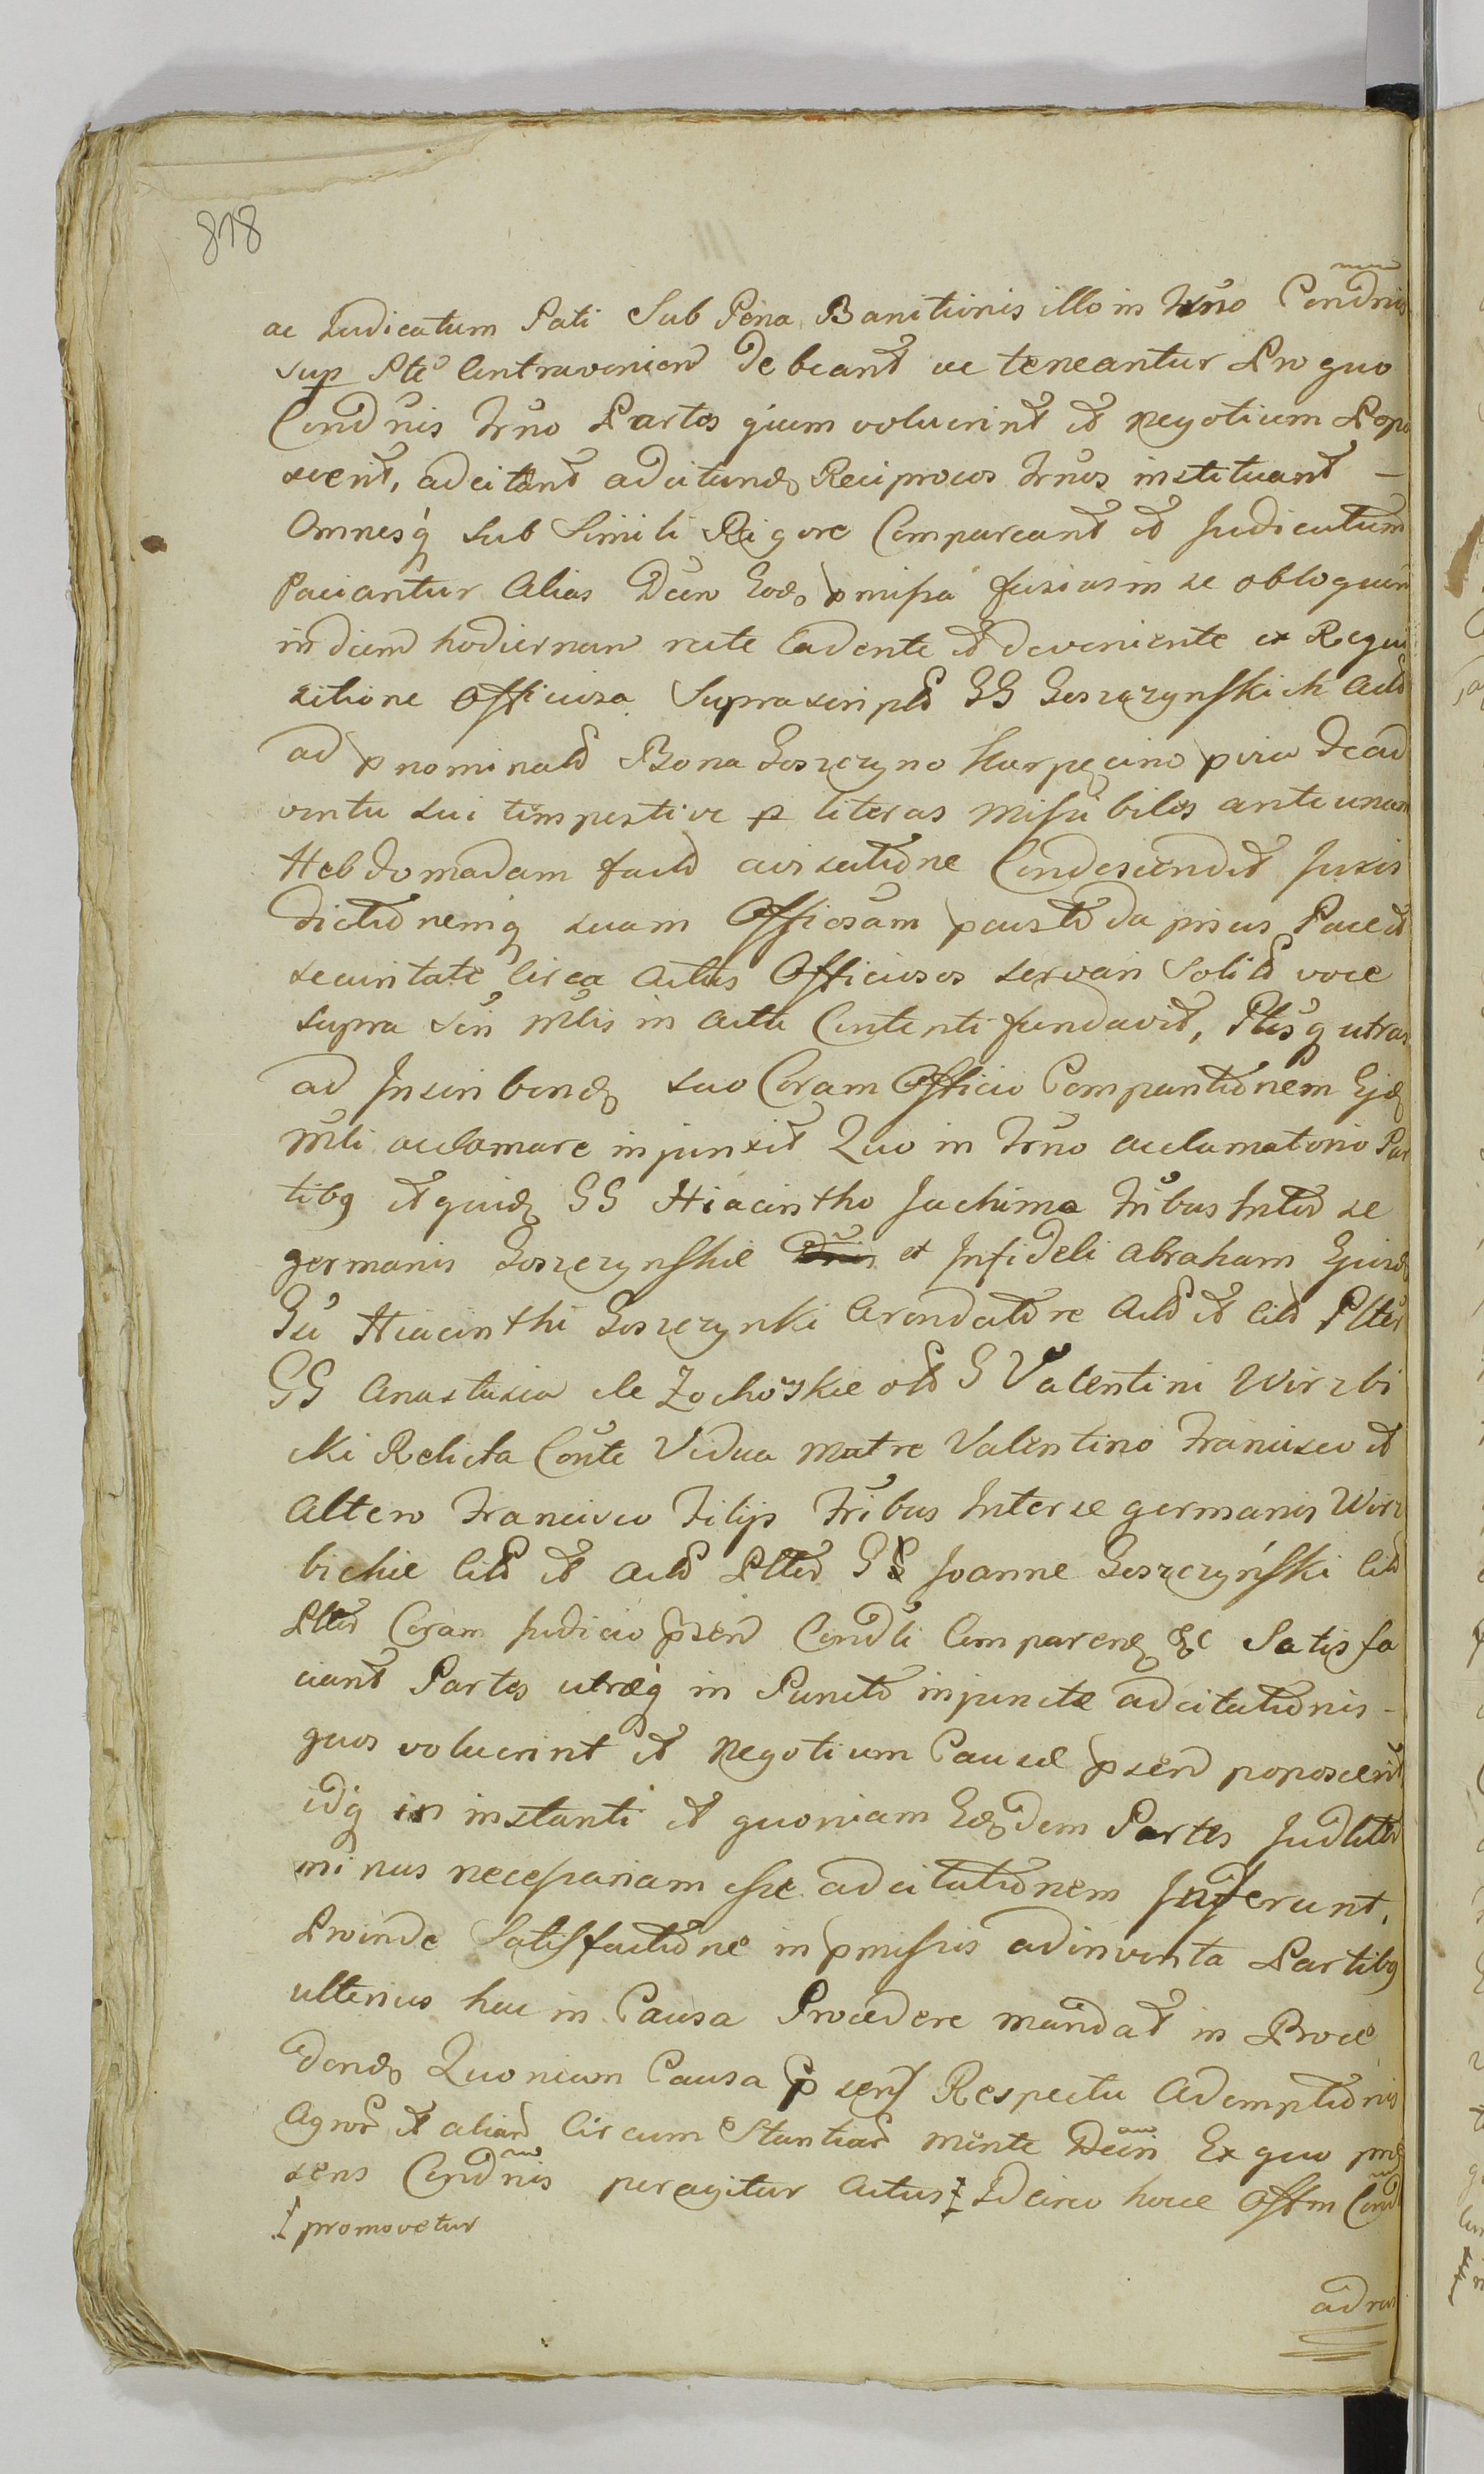 818
ac Judicatum Pati Sub Pena Banitionis illo in Trno Condnis
sup Pte Contravenien debeant ac teneantur Pro quo
Condnis Trno Partes quem voluerint et negotium Popo
scerit, adcitent adcitandq Reciprocos Trnos instituant –
Omnesq sub Simili Rigore Compareant et Judicatum
Paciantur Alias Dcro Eod pmissa fusius in se obloquen
in diem hodiernam recte Cadente et deveniente ex Requi
sitione Officiosa Suprascripto GG Goszczynskich Acto
ad pnominato Bona Goszczyno Karpęcino pvia de ad
ventu sui tempestive p literas missibiles ante unam
Hebdomadam facto avisatione Condescendit Juris
dictionemq suam Officosam Pace et
securitate Circa Actus Officiosos servari Solito voce
supra Scri Mlis in Actu Contenti fundavit, Ptesq utras
ad Inscribend suo Coram Officio Compantionem Ejd
Mli acclamare injunxit Quo in Trno acclamatorio Par
tibq et quid GG Hiacintho Jachimo Fribus Inter se
germanis Goszczynskie et Infideli Abraham Ejusd
Gsi Hiacinthi Goszczynki Arendatore Acto et Cito Plter
GG Anastasia de Zochoskie oto G Valentini Wirzbi
cki Relicta Conte Vidua Matre Valentino Francisco et
Altero Francisco Filijs Fribus Inter se germanis Wirz
bickie Cito et Acto Pltes G Joanne Goszczyński Cito
Pltes Coram Judicio psen Condli Comparen &c Satisfa
ciant Partes utræq in Puncto injunctæ adcitationis –
quos voluerint et Negotium Causæ psen poposcerit
idq in instanti et quoniam Eædem Partes Judliter
minus necessariam esse adcitationem Inferunt,
Proinde Satisfactione in pmissis adinventa Partibq
ulterius hac in Causa Procedere mandat in Proce
dend Quonium Causa psens Respectu Ademptionis
Agror et aliar Circum Stantiar mente Dcri Ex quo præ
sens Condnis peragitur Actus Idcirco hocce Offm Cond
promovetur